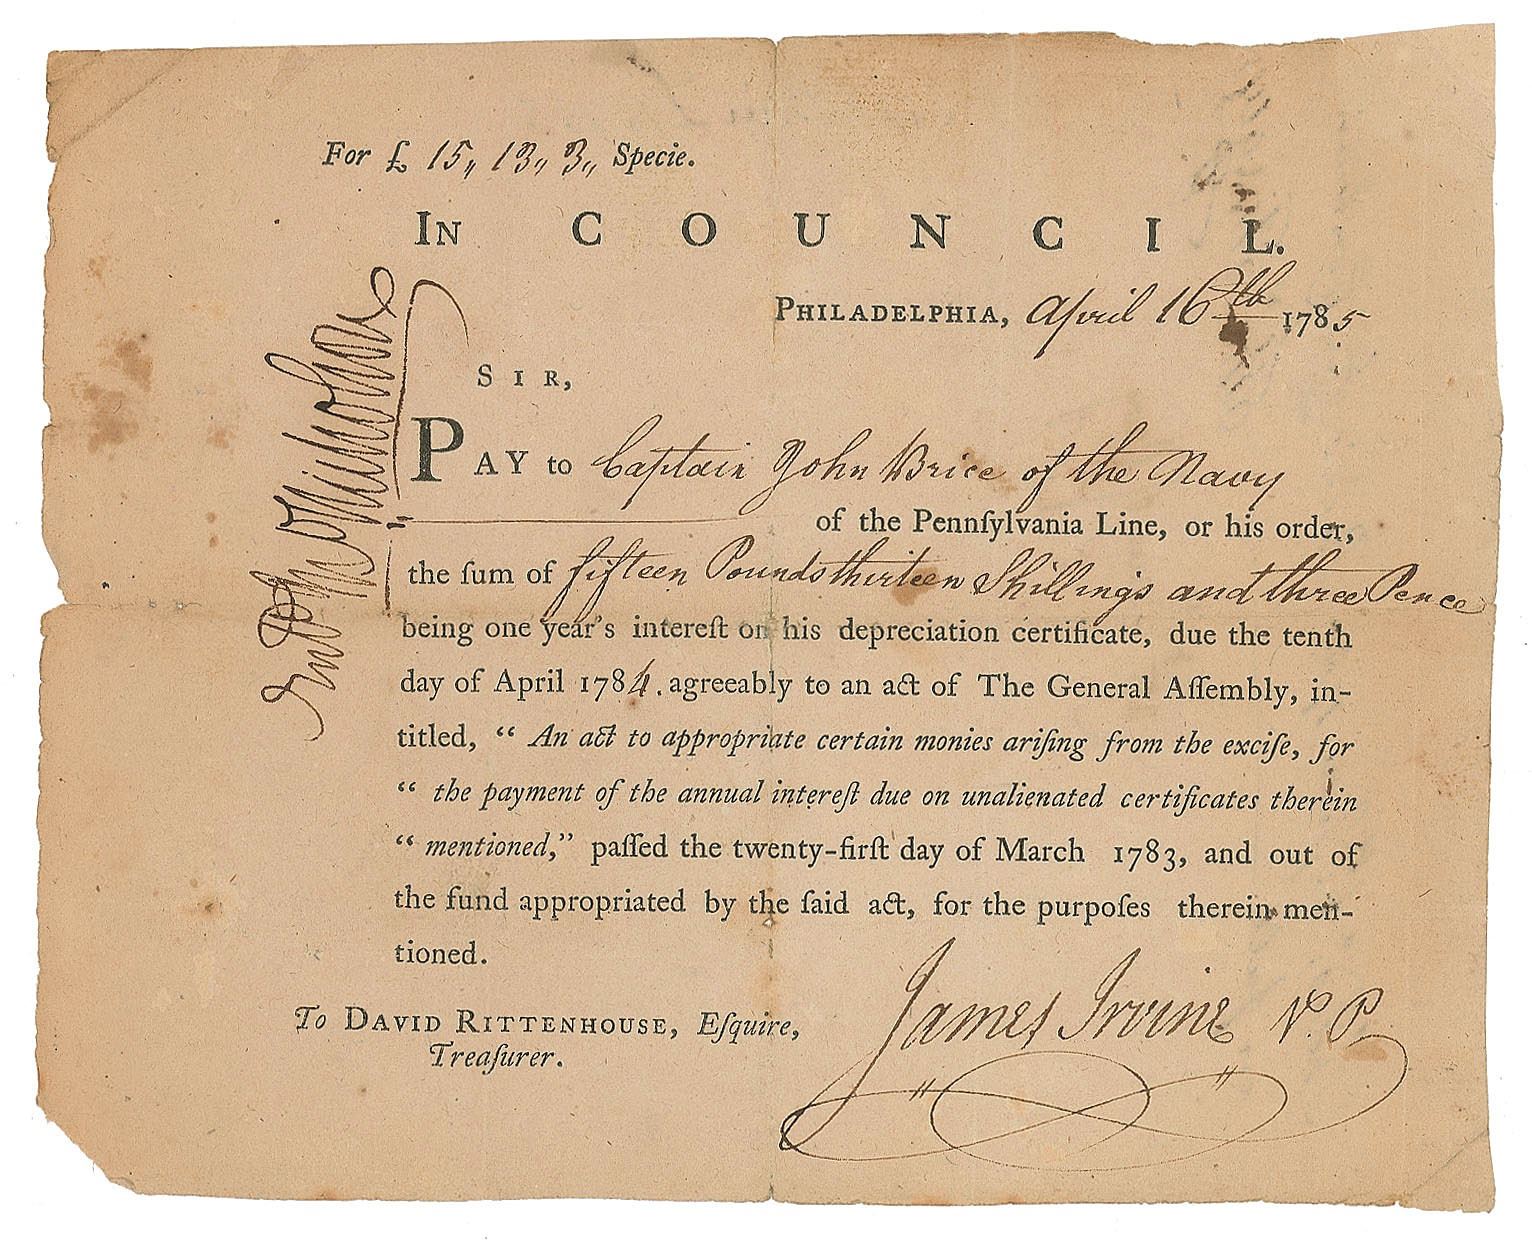 For £ 15,, 13,, 3,, Specie.
IN COUNCIL.
PHILADELPHIA, April 16th 1785
SIR,
PAY to Captain John Brice of the Navy
of the Pennſylvania Line, or his order,
the ſum of fifteen Pounds thirteen Shillings and three Pence
being one year's intereſt on his depreciation certificate, due the tenth
day of April 1784. agreeably to an act of The General Aſſembly, in-
titled, “ An act to appropriate certain monies ariſing from the exciſe, for
“ the payment of the annual intereſt due on unalienated certificates therein
“ mentioned,” paſſed the twenty-firſt day of March 1783, and out of
the fund appropriated by the ſaid act, for the purpoſes therein men-
tioned.
James Irvine V.P.
To DAVID RITTENHOUSE, Eſquire,
Treaſurer.
Jno Nicholson